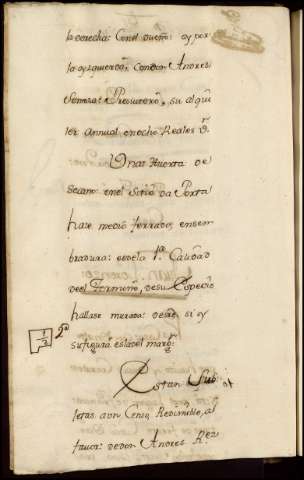 la derecha: Con el dueño: y por
la yzquierda, Con Andres
Somoza: Presvitero, su alqui
ler annual en ocho Reales V.ⁿ
Una Huerta de
secano en el Sitio da Porta
haze medio ferrado, en sem
bradura: es de la 1ª Calidad
del Termino, de su Especie
hallase murada: de por si y
su figura es la del marg.ⁿ
1/2 1ª
Estan Sub
letas a un Censo Redimible, a
favor: de don Andres R.ez